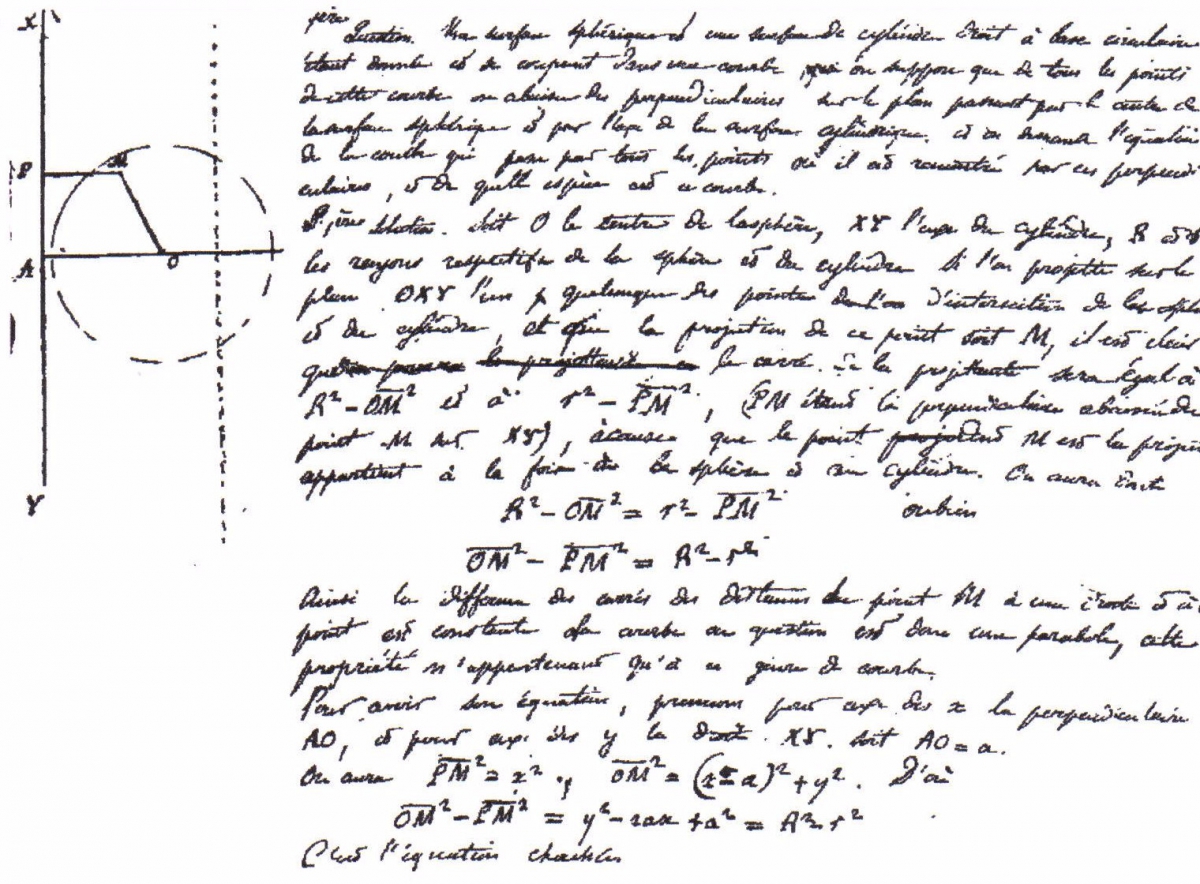 X
P
M
A
O
Y
1ère Question. Une surface sphérique et une surface de cylindre droit à base circulaire
étant donnée et se coupant dans une courbe, on suppose que de tous les points
de cette courbe on abaisse des perpendiculaires sur le plan passant par le centre de
la surface sphérique et par l'axe de la surface cylindrique. et on demande l'équation
de la courbe qui passe par tous les points où il est rencontré par ces perpendi
culaires, et de quelle espèce est ce courbe.
1ère Solution. Soit O le centre de la sphère, XY l'axe du cylindre, R et
les rayons respectifs de la sphère et du cylindre Si l'on projette sur le
plan OXY l'un quelconque des points d'intersection de la sphè
et du cylindre, et que la projection de ce point soit M, il est clair
que le carré de la projettante sera égal à
R² - OM² et à r² - PM², (PM étant la perpendiculaire abaissée du
point M sur XY), à cause que le point M est la projec
appartient à la fois à la sphère et au cylindre. On aura donc
R² - OM² = r² - PM² oubien
OM² - PM² = R² - r²
Ainsi la différence des carrés des distances du point M à une droite et à
point est constante la courbe en question est donc une parabole, cette
propriété n'appartenant qu'à ce genre de courbe.
Pour avoir son équation, prenons pour axe des x la perpendiculaire
AO, et pour axe des y la droite XY. soit AO = a.
On aura PM² = x², OM² = (x - a)² + y². D'où
OM² - PM² = y² - 2ax + a² = R² - r²
C'est l'équation cherchée